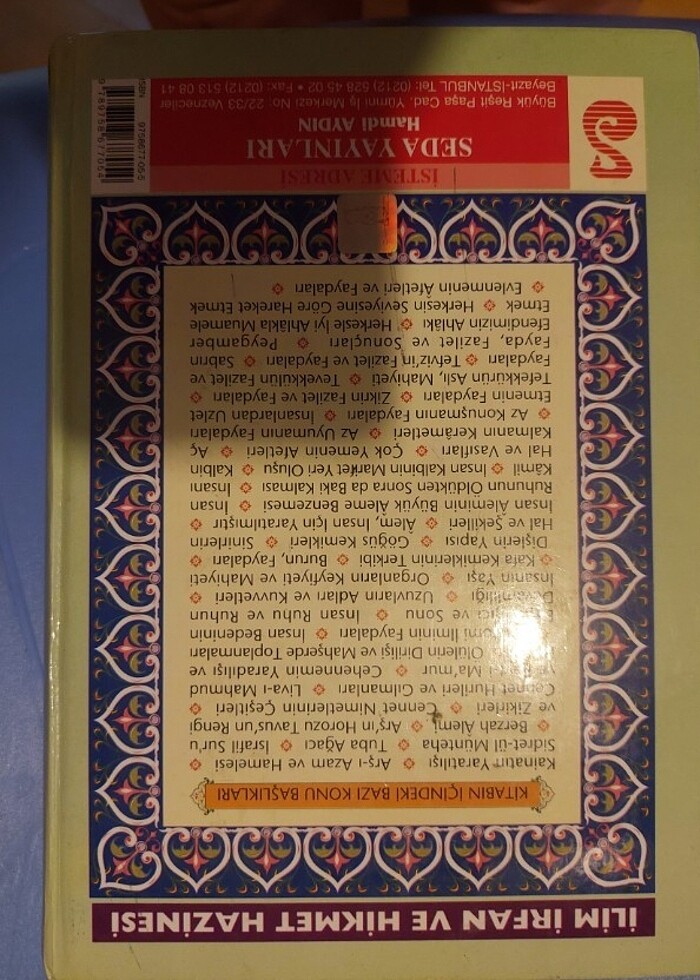 İLİM İRFAN VE HİKMET HAZİNESİ
KİTABIN İÇİNDEKİ BAZI KONU BAŞLIKLARI
Kainatın Yaratılışı Arş-ı Azam ve Hamelesi
Sidret-ül Münteha Tuba Ağacı İsrafil Sur'u
Berzah Alemi Arş'ın Horozu Tavus'un Rengi
ve Zikirleri Cennet Nimetlerinin Çeşitleri
Cennet Hurileri ve Gılmanları Liva-ı Mahmud
Ma'mur Cehennemin Yaradılışı ve
Ölülerin Dirilişi ve Mahşerde Toplanmaları
İlminin Faydaları İnsan Bedeninin
ve Sonu İnsan Ruhu ve Ruhun
Devamlılığı Uzuvların Adları ve Kuvvetleri
İnsanın Yaşı Organların Keyfiyeti ve Mahiyeti
Kafa Kemiklerinin Terkibi Burun, Faydaları
Dişlerin Yapısı Göğüs Kemikleri Sinirlerin
Hal ve Şekilleri Âlem, İnsan İçin Yaratılmıştır
İnsan Aleminin Büyük Âleme Benzemesi İnsan
Ruhunun Öldükten Sonra da Baki Kalması İnsanı
Kâmil İnsan Kalbinin Marifet Yeri Oluşu Kalbin
Hal ve Vasıfları Çok Yemenin Afetleri Aç
Kalmanın Kerâmetleri Az Uyumanın Faydaları
Az Konuşmanın Faydaları İnsanlardan Uzlet
Etmenin Faydaları Zikrin Fazilet ve Faydaları
Tefekkürün Aslı, Mahiyeti Tevekkülün Fazilet ve
Faydaları Tefviz'in Fazilet ve Faydaları Sabrın
Fayda, Fazilet ve Sonuçları Peygamber
Efendimizin Ahlâkı Herkesle İyi Ahlâkla Muamele
Etmek Herkesin Seviyesine Göre Hareket Etmek
Evlenmenin Âfetleri ve Faydaları
İSTEME ADRESİ
SEDA YAYINLARI
Hamdi AYDIN
Büyük Reşit Paşa Cad. Yümni İş Merkezi No: 22/33 Vezneciler
Beyazıt-İSTANBUL Tel: (0212) 528 45 02 • Fax: (0212) 513 08 41
ISBN 975867705-5
9 789758 677054